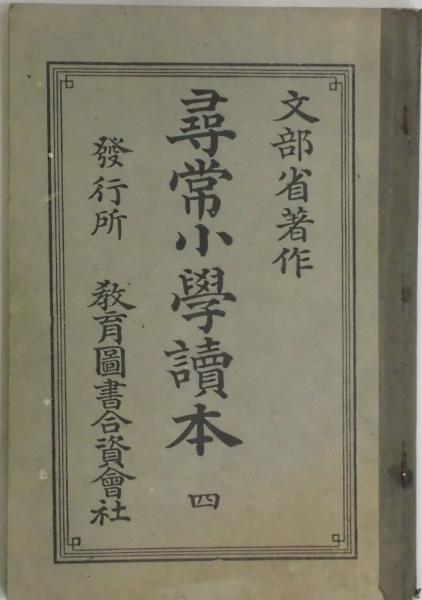 文部省著作
尋常小學讀本 四
發行所 敎育圖書合資會社